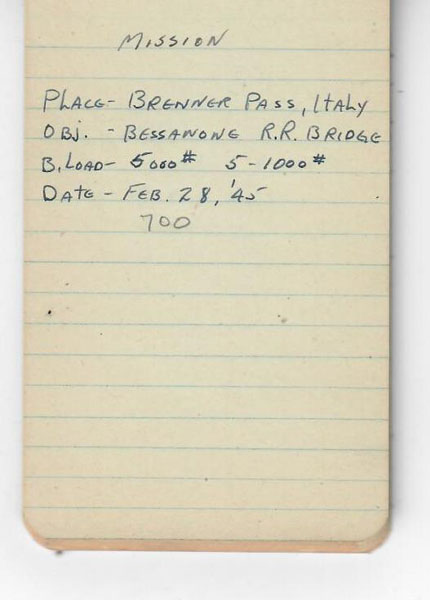 MISSION
PLACE- BRENNER PASS, ITALY
OBJ. - BESSANONE R.R. BRIDGE
B, LOAD- 5000# 5-1000#
DATE - FEB. 28, '45
700